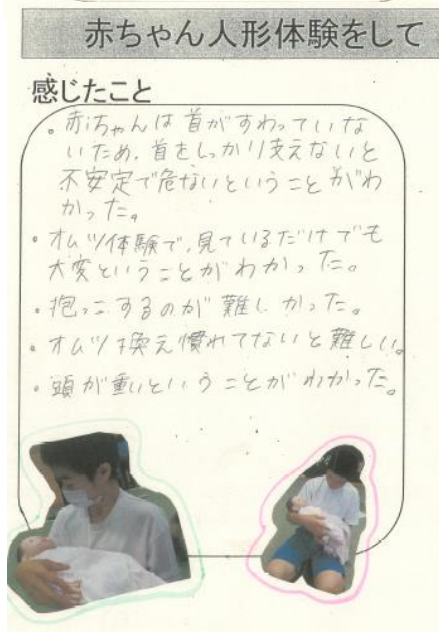 赤ちゃん人形体験をして
感じたこと
・赤ちゃんは首がすわっていな
いため、首をしっかり支えないと
不安定で危ないということがわ
かった。
・オムツ体験で、見ているだけでも
大変ということがわかった。
・抱っこするのが難しかった。
・オムツ換え慣れてないと難しい。
・頭が重いということがわかった。